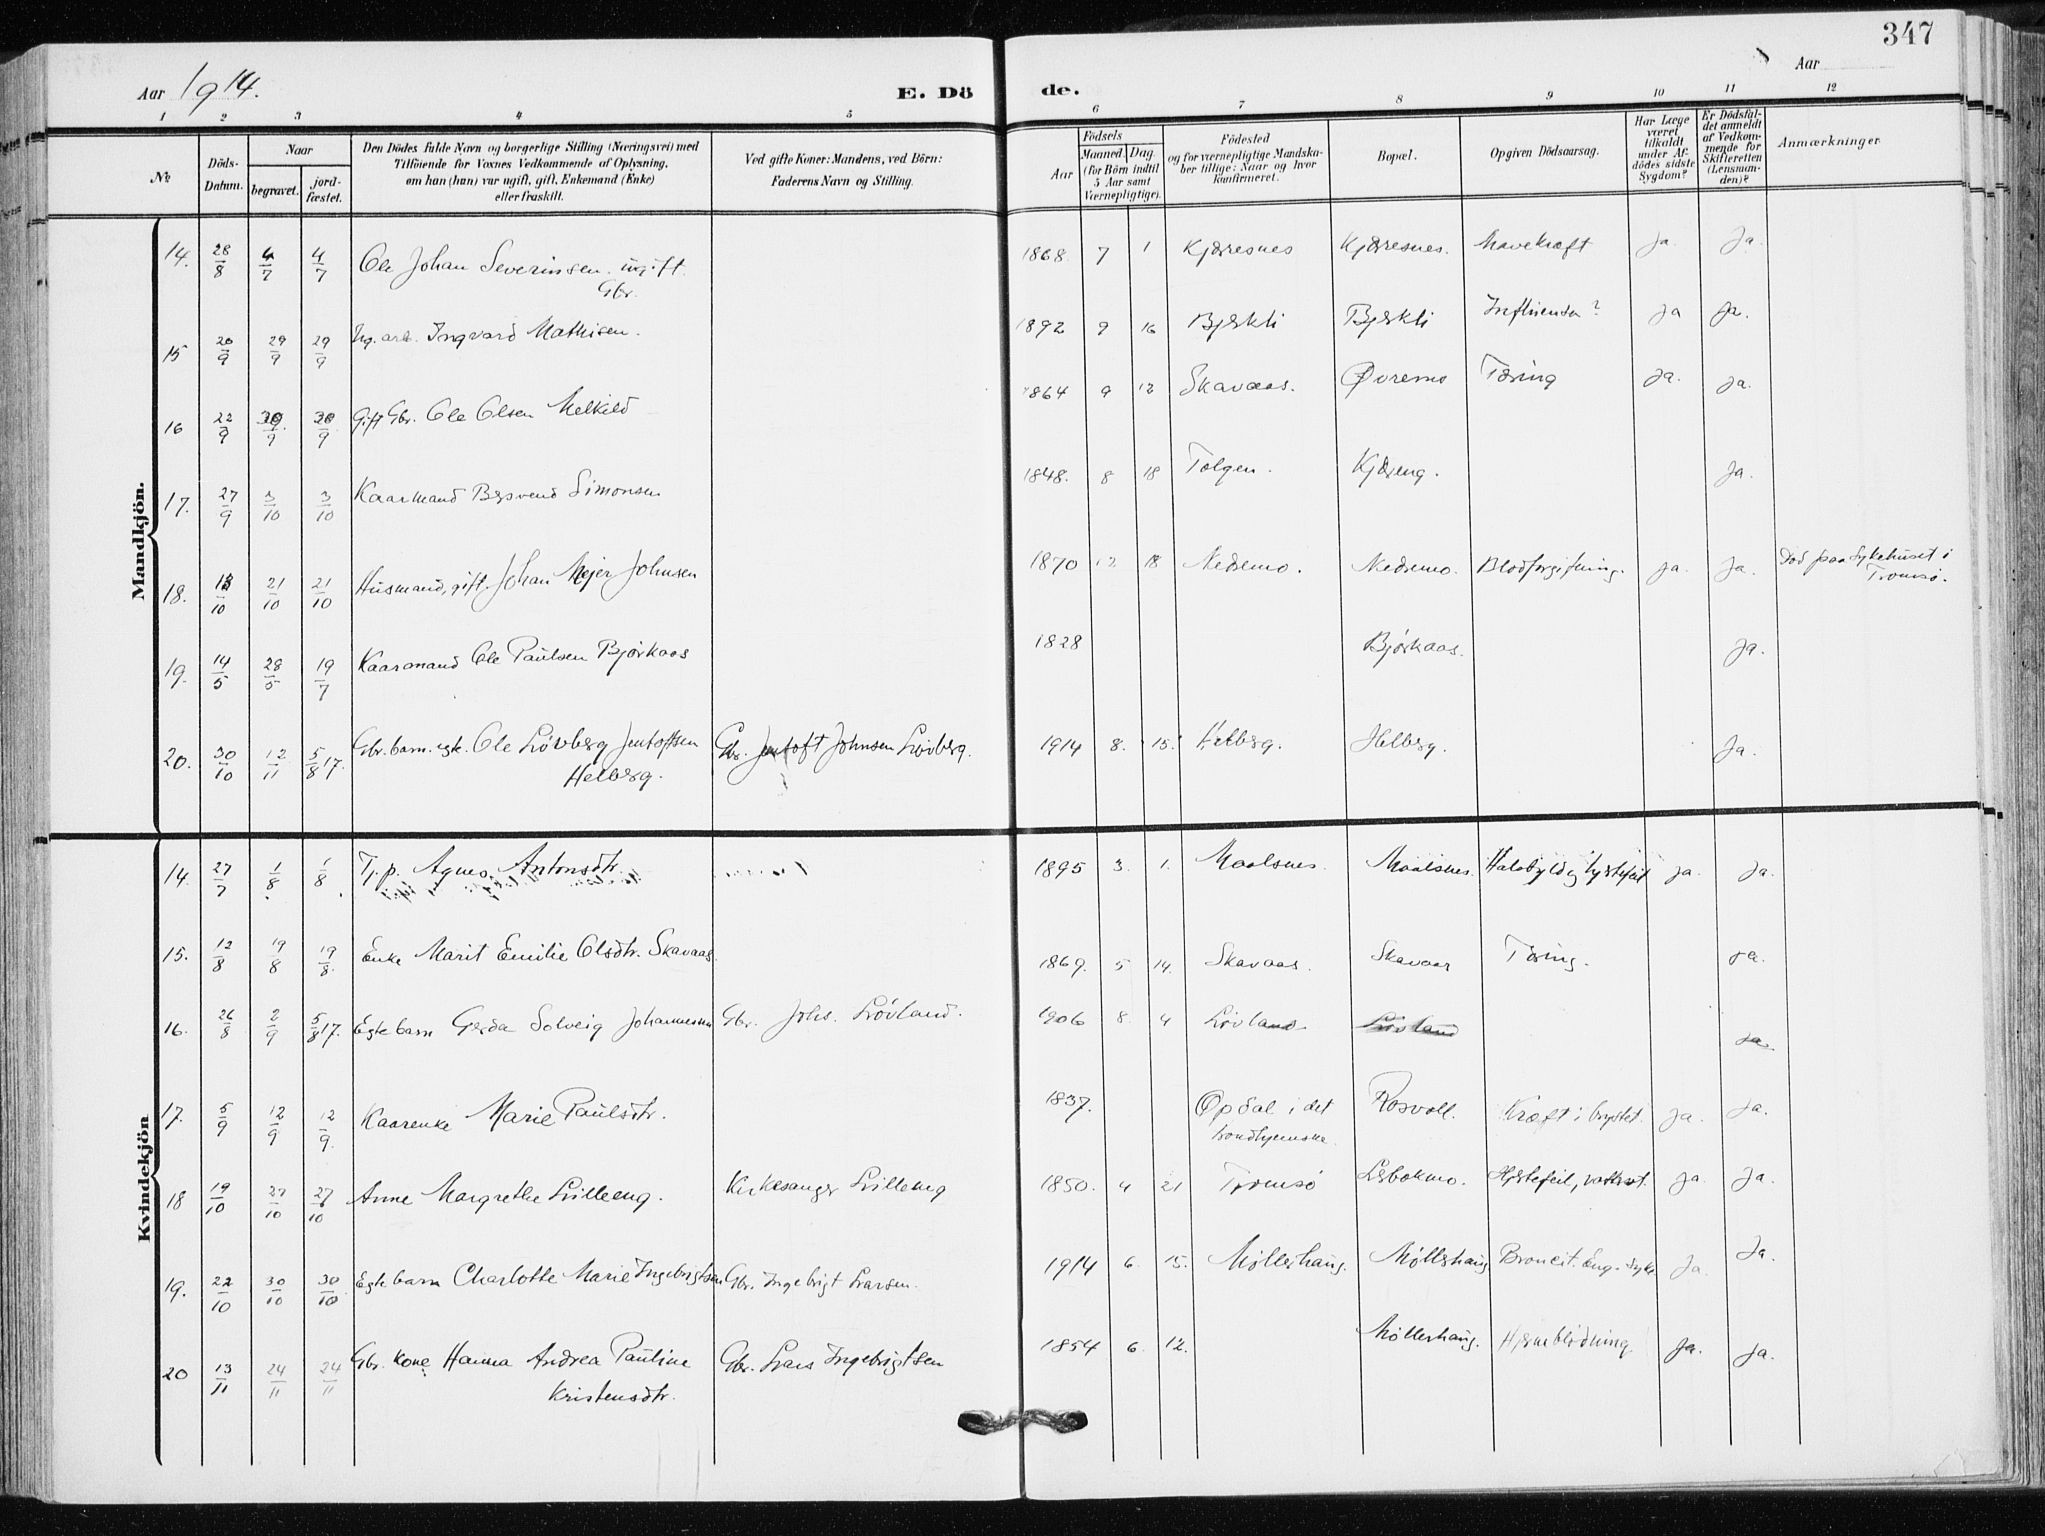 347
Aar 1914.
E. Dö
de.
Aar
1 2 3 4 5 6 7 8 9 10 11 12
№
Döds-Datum.
Naar
begravet.
jord-fæstet.
Den Dödes fulde Navn og borgerlige Stilling (Næringsvei) med
Tilföiende for Voxnes Vedkommende af Oplysning,
om han (hun) var ugift, gift, Enkemand (Enke)
eller fraskilt.
Ved gifte Koner: Mandens, ved Börn:
Faderens Navn og Stilling.
Födsels
Aar
Maaned. Dag.
(for Börn indtil
5 Aar samt
Værnepligtige).
Födested
og for værnepligtige Mandska-
ber tillige: Naar og hvor
konfirmeret.
Bopæl.
Opgiven Dödsaarsag.
Har Læge
været
tilkaldt
under Af-
dödes sidste
Sygdom?
Er Dödsfal-
det anmeldt
af Vedkom-
mende for
Skifteretten
(Lensman-
den)?
Anmærkninger
Mandkjön.
14. 28/8 4/7 4/7 Ole Johan Severinsen. ugift. 1868. 7 1 Kjæresnes Kjæresnes. Mavekræft Ja. Ja.
Gbr.
15 20/9 29/9 29/9 Ug. arb. Ingvard Mathisen. 1892 9 16 Bjerkli Bjerkli Influensa? Ja Ja.
16 22/9 30/9 30/9 Gift Gbr. Ole Olsen Melkild 1864 9 12 Skavaas. Øvremo Tæring Ja. Ja.
17. 27/9 3/10 3/10 Kaarmand Bersvend Simonsen 1848. 8 18 Tolgen. Kjæreng. Ja.
18. 13/10 21/10 21/10 Husmand, gift. Johan Mejer Johnsen 1870 12 18 Nedremo. Nedremo. Blodforgiftning. Ja. Ja. Død paa Sykehuset i
Tromsø.
19. 14/5 28/5 19/7 Kaarmand Ole Paulsen Bjørkaas 1828 Bjørkaas. Ja.
20. 30/10 12/11 5/8 17. Gbr. barn. egte. Ole Løvberg Jentoftsen Gbr. Jentoft Johnsen Løvberg. 1914 8. 15. Helberg. Helberg. Ja.
Helberg.
Kvindekjön
14. 27/7 1/8 1/8 Tj. p. Agnes Antonsdtr. 1895 3. 1. Maalsnes. Maalsnes. Halsbyld og hjertefeil Ja. Ja.
15. 12/8 19/8 19/8. Enke Marit Emilie Olsdtr. Skavaas 1869. 5 14. Skavaas. Skavaas Tæring. Ja.
16. 26/8 2/9 5/8 17. Egte barn Gerda Solveig Johannessen Gbr. Johs. Løvland. 1906 8. 4 Løvland Løvland Ja.
17. 5/9 12/9 12/9. Kaarenke Marie Paulsdtr. 1837. Opdal i det Rosvoll. Kræft i brystet. Ja. Ja.
trondhjemske.
18 19/10 27/10 27/10 Anne Margrethe Lilleeng. Kirkesanger Lilleeng 1850. 4 21 Tromsø Hjertefeil, Ja. Ja.
19. 22/10 30/10 30/10 Egte barn Charlotte Marie Ingebrigtsen Gbr. Ingebrigt Larsen. 1914 6. 15. Møllerhaug. Møllerhaug Broncit. Eng. syke Ja. Ja.
20 13/11 24/11 24/11 Gbr. Kone Hanna Andrea Pauline Gbr. Lars Ingebrigtsen 1854 6. 12. Møllerhaug. Hjerneblødning. Ja. Ja.
Kristensdtr.